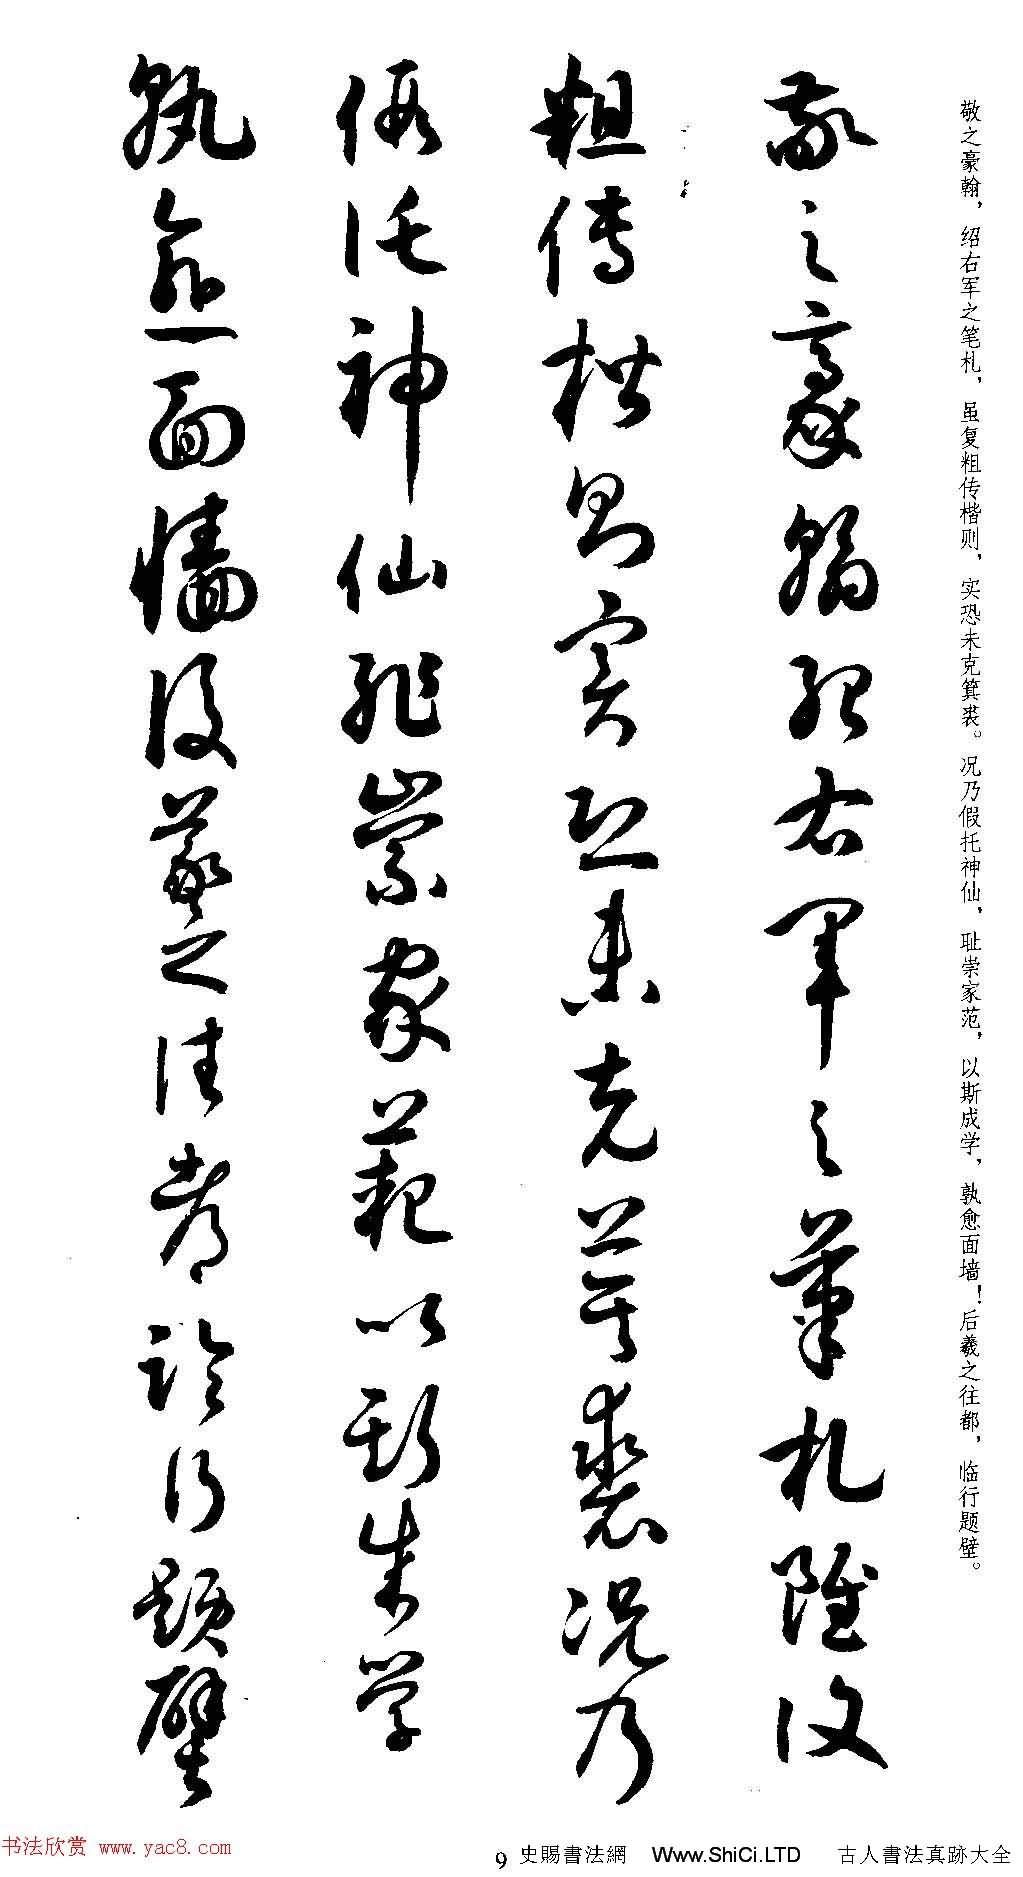 敬之豪翰，绍右军之笔札，虽复粗传楷则，实恐未克箕裘。况乃假托神仙，耻崇家范，以斯成学，孰愈面墙！后羲之往都，临行题壁。
敬之豪翰紹右軍之筆札雖復
粗傳楷則實恐未克箕裘況乃
假託神仙恥崇家範以斯成學
孰愈面墻後羲之往都臨行題壁
书法欣赏 www.yac8.com
9
史賜書法網 Www.ShiCi.LTD 古人書法真跡大全